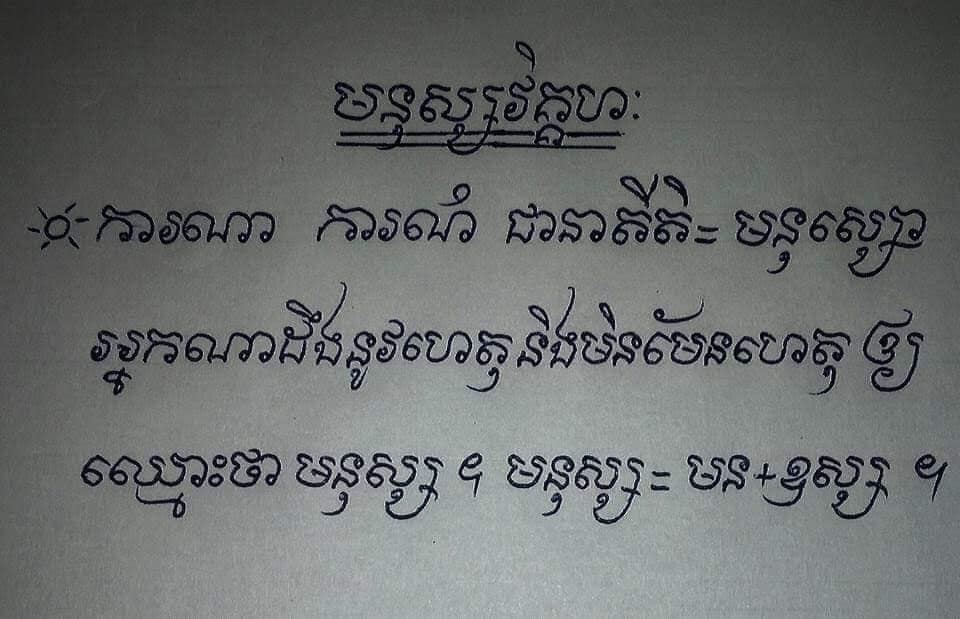 មនុស្សវិគ្គហៈ
ការណា ការណំ ជានាតីតិ= មនុស្សោ
អ្នកណាដឹងនូវហេតុនិងមិនមែនហេតុ ឲ្យ
ឈ្មោះថា មនុស្ស ។ មនុស្ស= មន+ឧស្ស ។